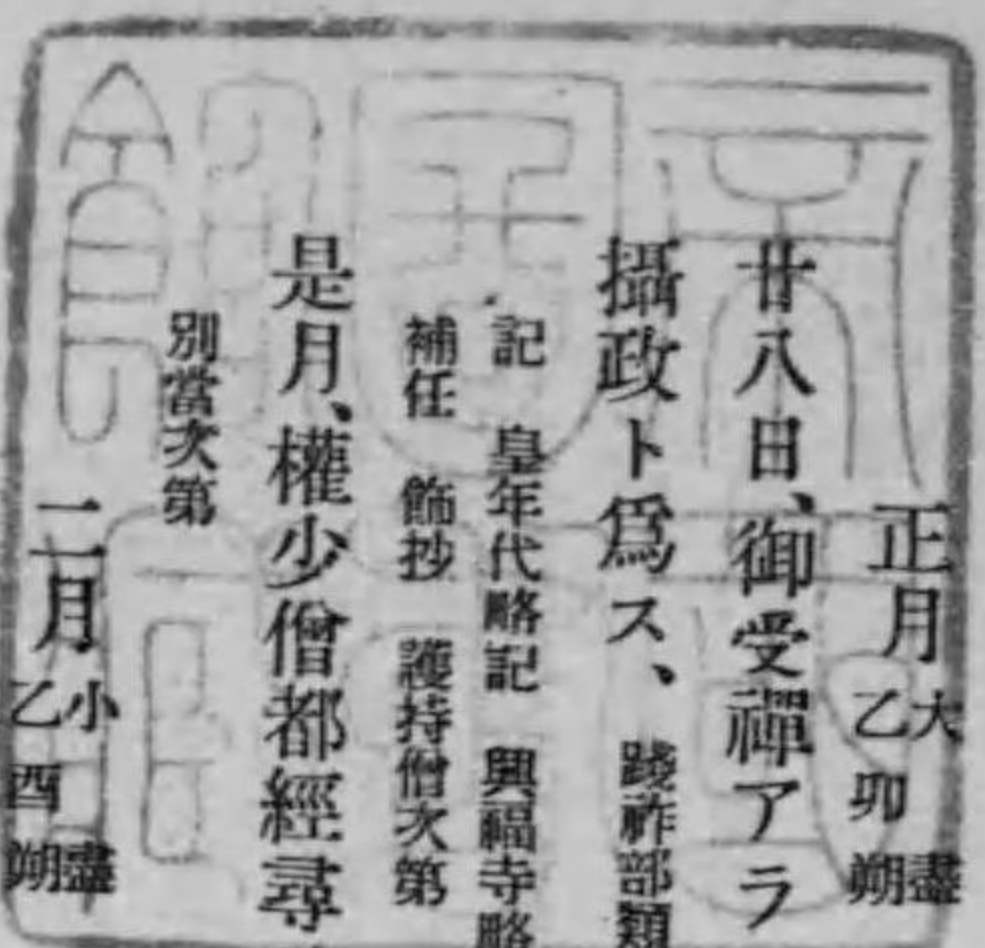 正月大盡乙卯朔
廿八日、御受禪アラ
攝政ト爲ス、踐祚部類
記 皇年代略記 興福寺略
補任 飾抄 護持僧次第
是月、權少僧都經尋
別當次第
二月小盡乙酉朔